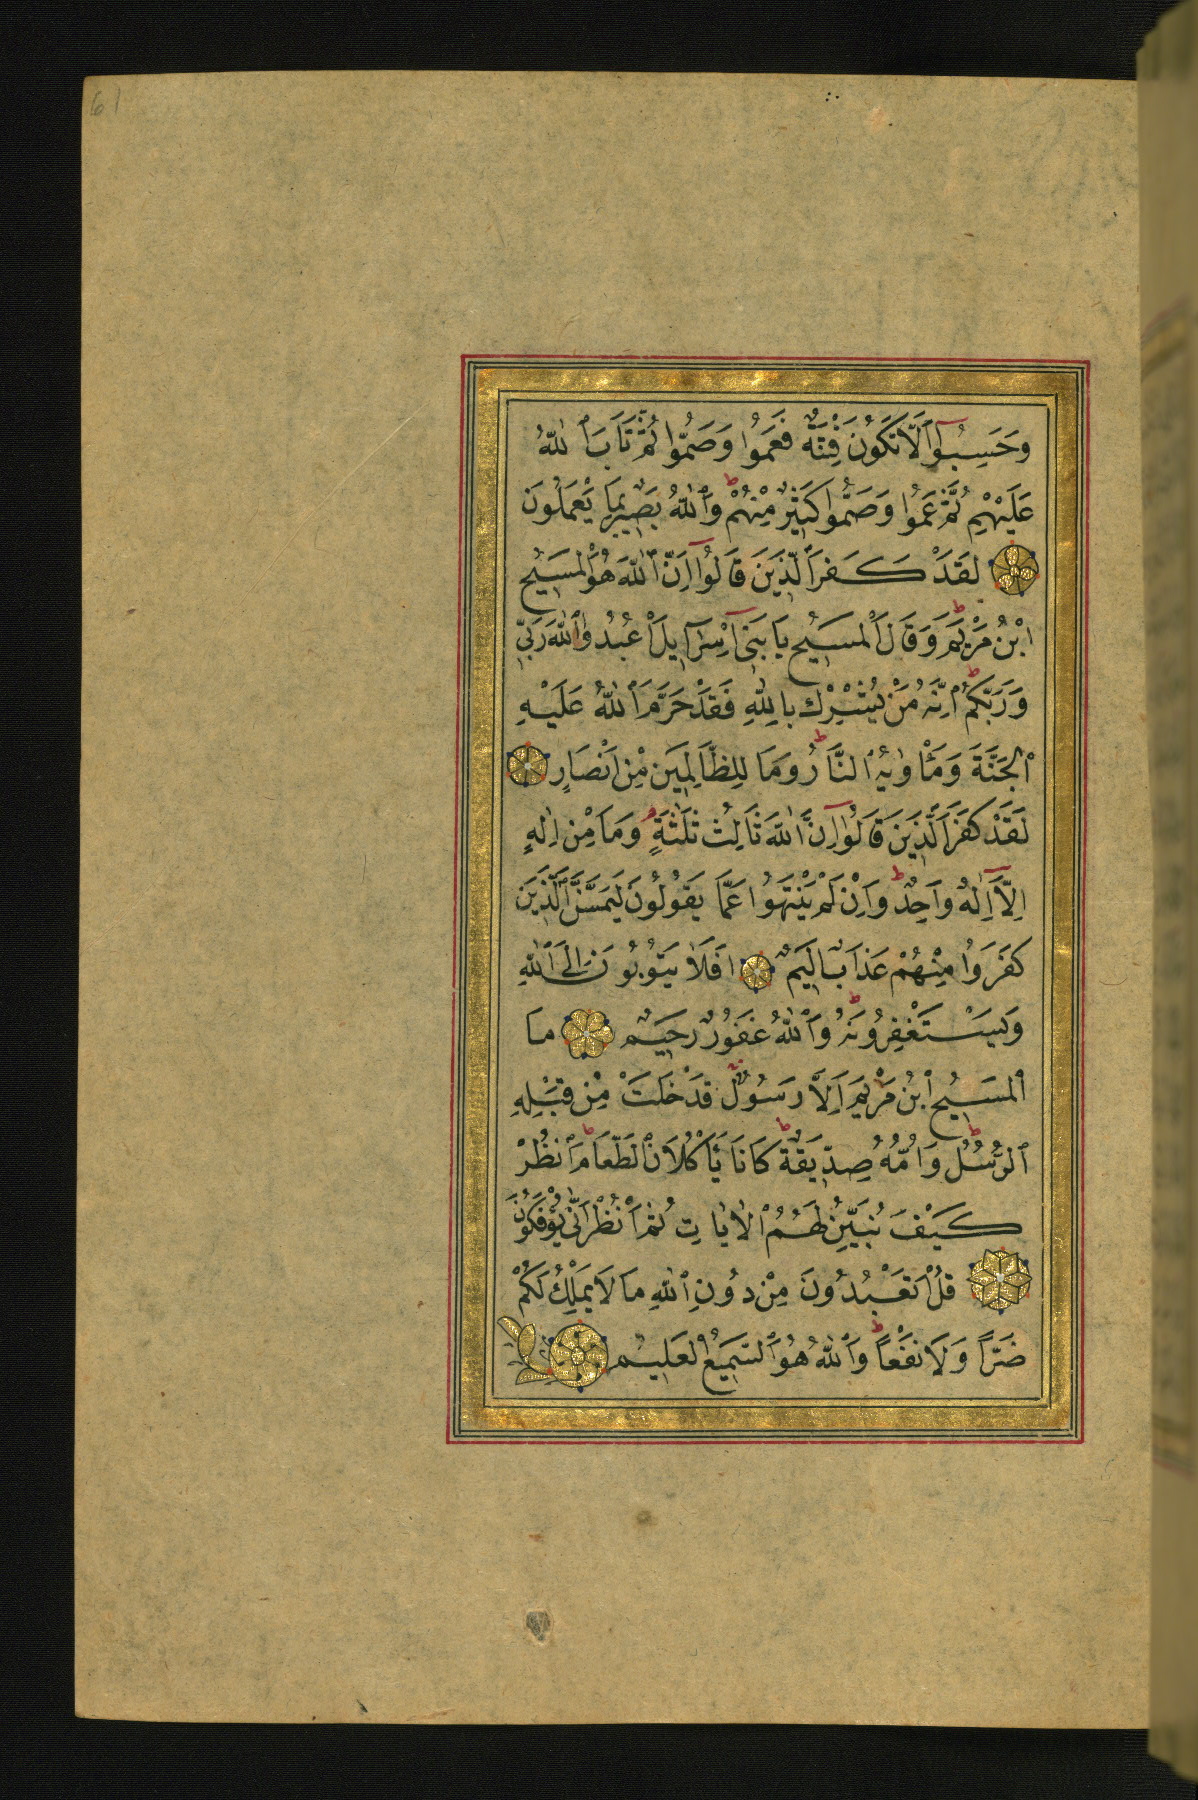 61
وَحَسِبُوٓا اَلَّا تَكُونَ فِتْنَةٌ فَعَمُوا وَصَمُّوا ثُمَّ تَابَ اللّٰهُ
عَلَيْهِمْ ثُمَّ عَمُوا وَصَمُّوا كَثِيرٌ مِنْهُمْ ط وَاللّٰهُ بَصِيرٌ بِمَا يَعْمَلُونَ
لَقَدْ كَفَرَ الَّذِينَ قَالُوٓا اِنَّ اللّٰهَ هُوَ الْمَسِيحُ
ابْنُ مَرْيَمَ ط وَقَالَ الْمَسِيحُ يَا بَنِىٓ اِسْرَآئِيلَ اعْبُدُوا اللّٰهَ رَبِّى
وَرَبَّكُمْ ط اِنَّهُ مَنْ يُشْرِكْ بِاللّٰهِ فَقَدْ حَرَّمَ اللّٰهُ عَلَيْهِ
الْجَنَّةَ وَمَأْوٰيهُ النَّارُ ط وَمَا لِلظَّالِمِينَ مِنْ اَنْصَارٍ
لَقَدْ كَفَرَ الَّذِينَ قَالُوٓا اِنَّ اللّٰهَ ثَالِثُ ثَلٰثَةٍ م وَمَا مِنْ اِلٰهٍ
اِلَّآ اِلٰهٌ وَاحِدٌ ط وَاِنْ لَمْ يَنْتَهُوا عَمَّا يَقُولُونَ لَيَمَسَّنَّ الَّذِينَ
كَفَرُوا مِنْهُمْ عَذَابٌ اَلِيمٌ اَفَلَا يَتُوبُونَ اِلَى اللّٰهِ
وَيَسْتَغْفِرُونَهُ ط وَاللّٰهُ غَفُورٌ رَحِيمٌ مَا
الْمَسِيحُ ابْنُ مَرْيَمَ اِلَّا رَسُولٌ قَدْ خَلَتْ مِنْ قَبْلِهِ
الرُّسُلُ ط وَاُمُّهُ صِدِّيقَةٌ ط كَانَا يَأْكُلَانِ الطَّعَامَ ط اُنْظُرْ
كَيْفَ نُبَيِّنُ لَهُمُ الْاٰيَاتِ ثُمَّ انْظُرْ اَنّٰى يُؤْفَكُونَ
قُلْ اَتَعْبُدُونَ مِنْ دُونِ اللّٰهِ مَا لَا يَمْلِكُ لَكُمْ
ضَرًّا وَلَا نَفْعًا ط وَاللّٰهُ هُوَ السَّمِيعُ الْعَلِيمُ